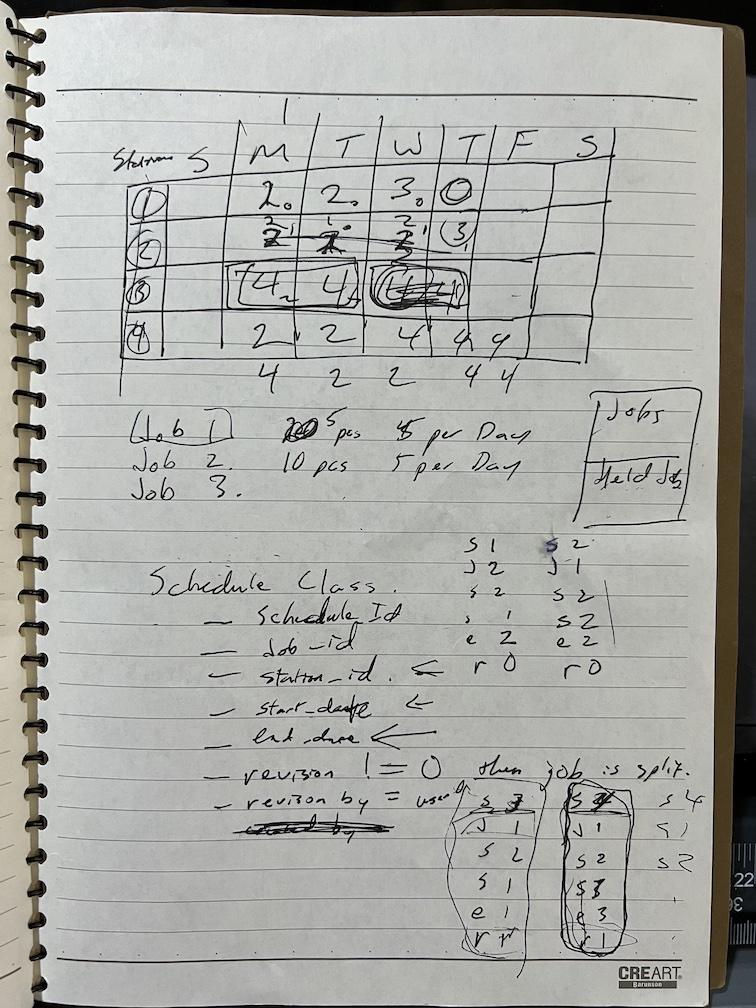 Station S M T W T F S
1 2. 2. 3. 0
2 3
3 4 4
4 2 2 4 4 4
4 2 2 4 4
Job 1 5 pcs 5 per Day
Job 2. 10 pcs 5 per Day
Job 3.
Jobs
Held Job
s 1 s 2
J 2 J 1
s 2 s 2
s 1 s 2
e 2 e 2
r 0 r 0
Schedule Class.
- Schedule Id
- Job_id
- station_id. ←
- start_date ←
- end_date ←
- revision != 0 then job is split.
- revison by = user
s 3
J 1
s 2
s 1
e 1
r
s
J 1
s 2
s 3
e 3
r 1
s 4
s 2
CREART
Barunson
22